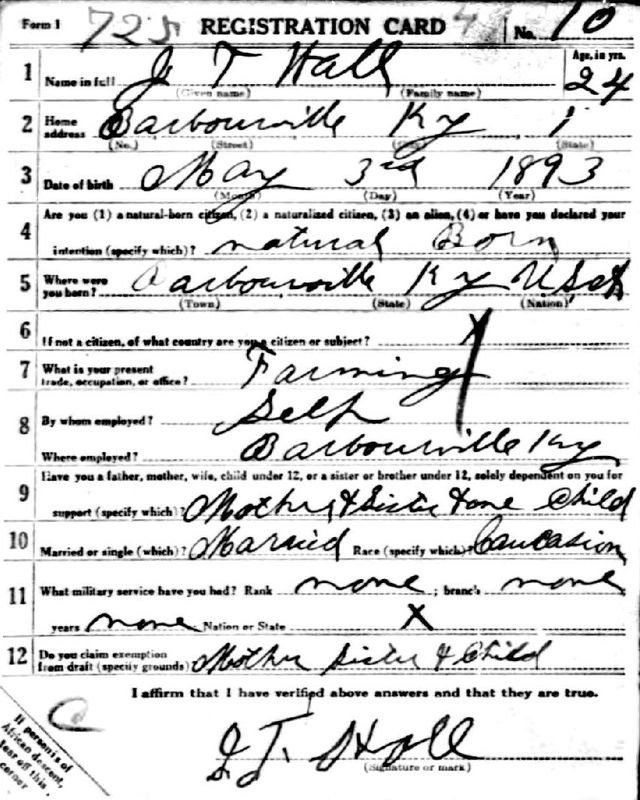 Form 1 725 REGISTRATION CARD 4 No. 10
1 Name in full J T Hall Age, in yrs. 24
(Given name) (Family name)
2 Home address Barbourville Ky
(No.) (Street) (City) (State)
3 Date of birth May 3rd 1893
(Month) (Day) (Year)
4 Are you (1) a natural-born citizen, (2) a naturalized citizen, (3) an alien, (4) or have you declared your
intention (specify which)? natural Born
5 Where were you born? Barbourville Ky USA
(Town) (State) (Nation)
6 If not a citizen, of what country are you a citizen or subject? X
7 What is your present trade, occupation, or office? Farming
8 By whom employed? Self
Where employed? Barbourville Ky
9 Have you a father, mother, wife, child under 12, or a sister or brother under 12, solely dependent on you for
support (specify which)? Mother & Sister & one Child
10 Married or single (which)? Married Race (specify which)? Caucasion
11 What military service have you had? Rank none ; branch none
years none Nation or State X
12 Do you claim exemption from draft (specify grounds) Mother Sister & Child
I affirm that I have verified above answers and that they are true.
J T. Hall
(Signature or mark)
If person is of
African descent,
tear off this
corner